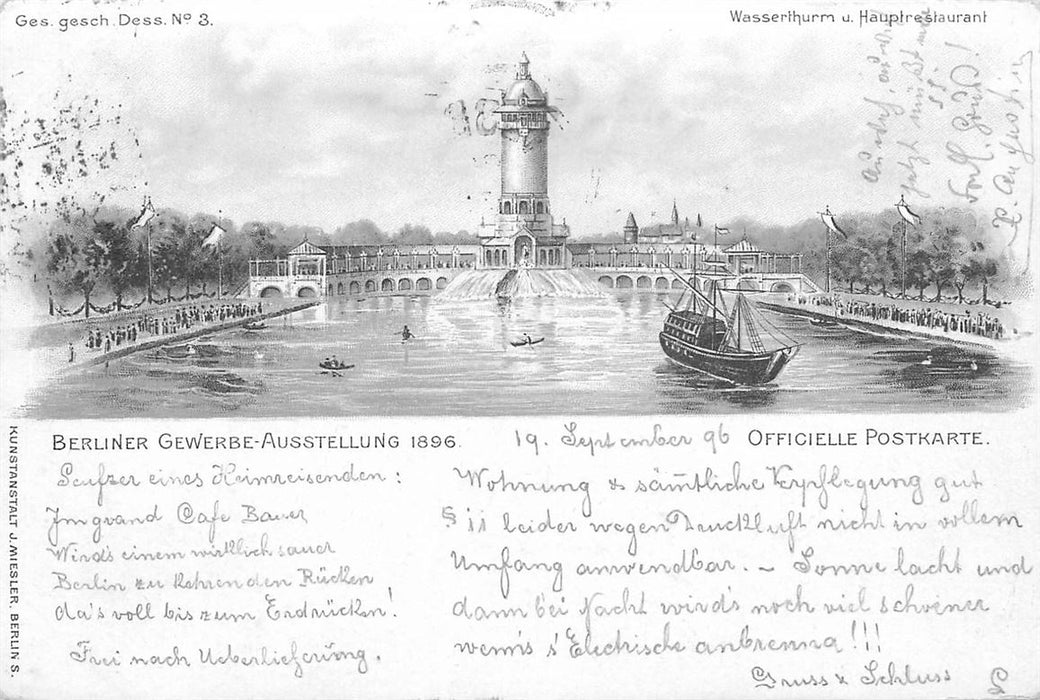 Ges. gesch. Dess. Nº 3.
Wasserthurm u. Hauptrestaurant
BERLINER GEWERBE-AUSSTELLUNG 1896.
19. September 96
OFFICIELLE POSTKARTE.
Seufzer eines Heimreisenden:
Im grand Cafe Bauer
Wird's einem wirklich sauer
Berlin zu kehren den Rücken
da's voll bis zum Erdrücken!
Frei nach Ueberlieferung.
Wohnung & sämtliche Verpflegung gut
§ 11 leider wegen Druckluft nicht in vollem
Umfang anwendbar. – Sonne lacht und
dann bei Nacht wird's noch viel schoener
wenn's s'Electrische anbrenna!!!
Gruss & Schluss
KUNSTANSTALT J. MIESLER, BERLIN S.